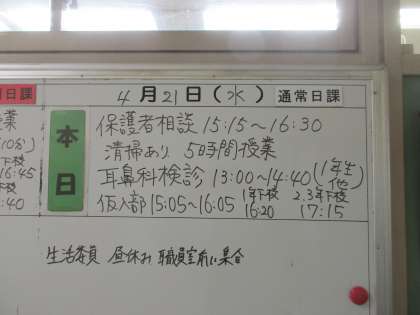 日課
4月21日(水) 通常日課
本日
保護者相談 15:15~16:30
清掃あり 5時間授業
耳鼻科検診 13:00~14:40(1年生他)
仮入部 15:05~16:05 1年下校 16:20 2.3年下校 17:15
業
下校
16:45
下校
:40
生活委員 昼休み 職員室前に集合